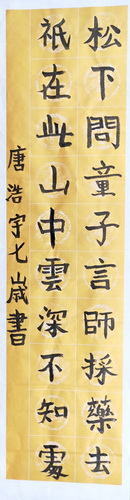 松下問童子言師採藥去
祇在此山中雲深不知處
唐浩宇七歲書